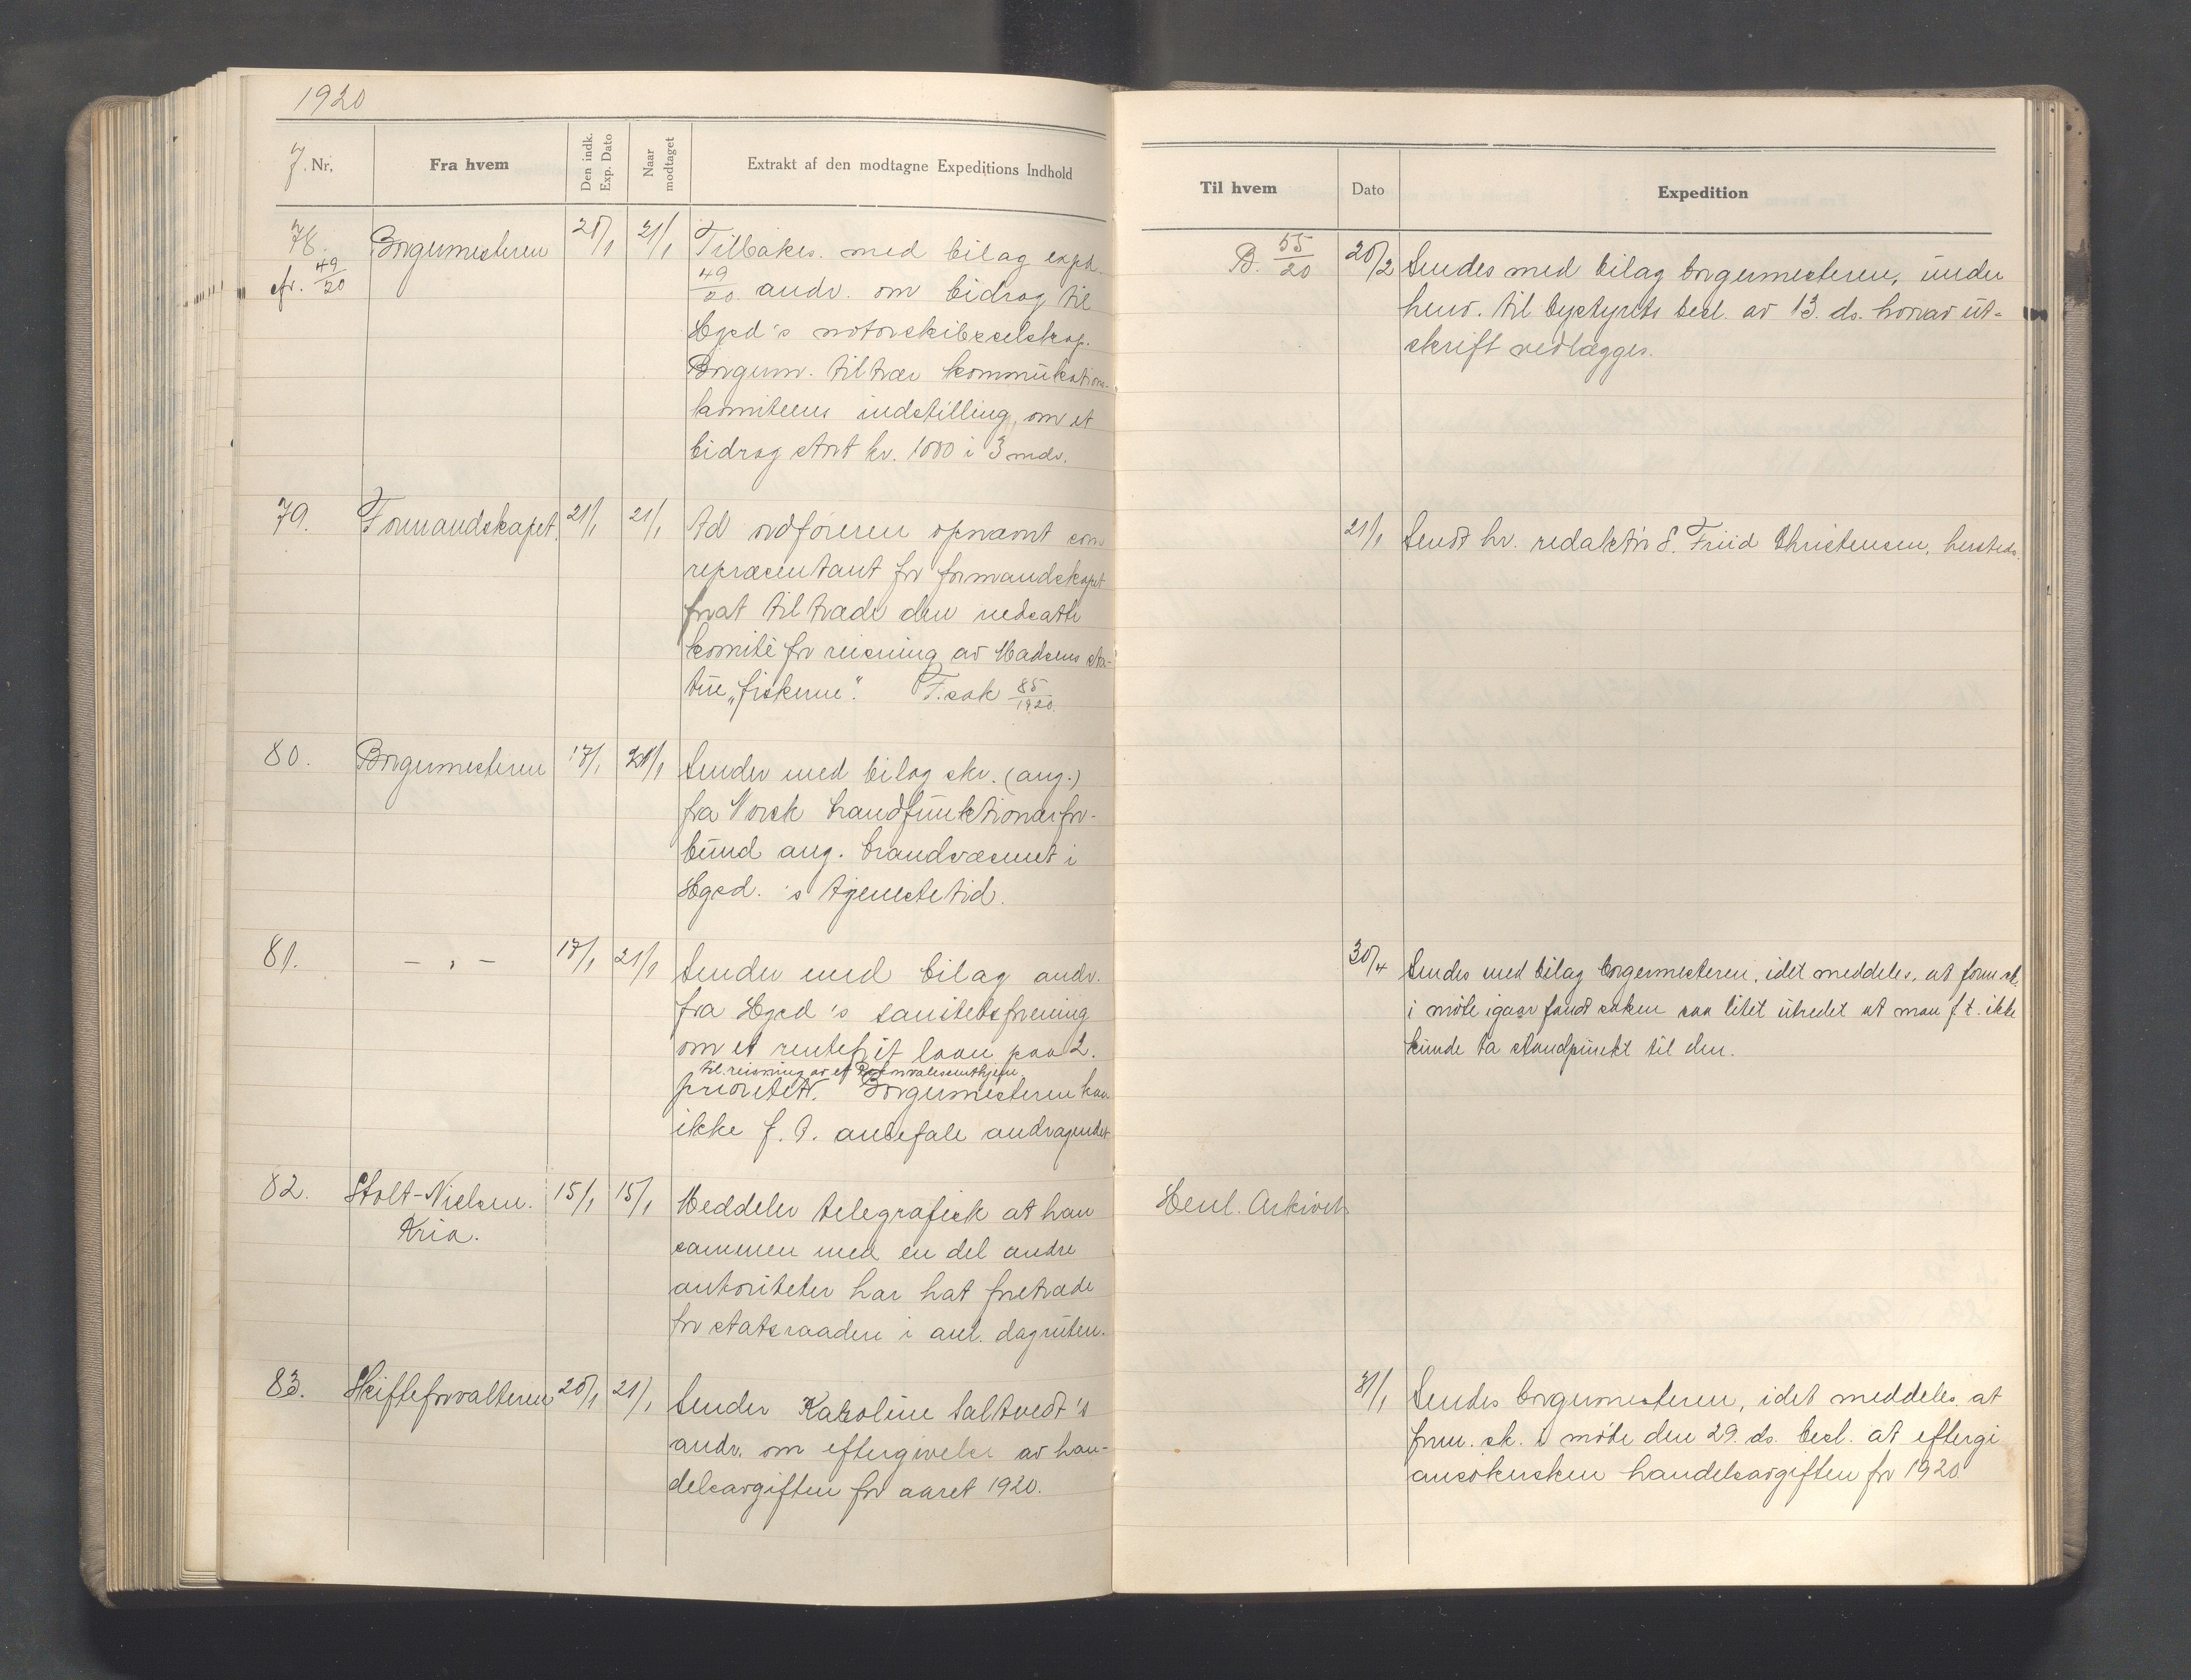 1920
J. Nr.
Fra hvem
Den indk. Exp. Dato
Naar modtaget
Extrakt af den modtagne Expeditions Indhold
Til hvem
Dato
Expedition
78.
cfr. 49/20
Borgermesteren
21/1
Tilbakes. med bilag exped.
49/20 andr. om bidrag til
Hgsd's motorskibsselskap.
Borgerm. tiltrær kommunikations-
komiteens indstilling, om et
bidrag stort kr. 1000 i 3 mdr.
B. 55/20
20/2
Sendes med bilag borgermesteren, under
henv. til bystyrets besl. av 13. ds. hvorav ut-
skrift vedlægges.
79.
Formandskapet
21/1
21/1
Ad ordføreren opnævnt som
repræsentant for formandskapet
for at tiltræde den nedsatte
komité for reisning av Madsens sta-
tue „fiskerne". F. sak 85/1920.
21/1
Sendt hr. redaktør S. Friid Christensen, hersteds.
80.
Borgermesteren
17/1
Sender med bilag skr. (ang.)
fra Norsk brandfunktionærfor-
bund ang. brandvæsenet i
Hgsd.'s tjenestetid.
81.
— " —
17/1
21/1
Sender med bilag andr.
fra Hgsd's sanitetsforening
om et rentefrit laan paa 2.
til reisning av et Rekonvalesenthjem.
prioritet. Borgermesteren kan
ikke f. t. anbefale andragendet
30/4
Sendes med bilag borgermesteren, idet meddeles, at form.sk.
i møte igaar fandt saken saa litet utredet at man f. t. ikke
kunde ta standpunkt til den.
82.
Stolt-Nielsen.
Kria.
15/1
15/1
Meddeler telegrafisk at han
sammen med en del andre
autoriteter har hat foretræde
for statsraaden i anl. dagruten.
Henl. Arkivet
83.
Skifteforvalteren
20/1
21/1
Sender Karoline Saltvedt's
andr. om eftergivelse av han-
delsavgiften for aaret 1920.
31/1
Sendes borgermesteren, idet meddeles at
form. sk. i møte den 29. ds. besl. at eftergi
ansøkersken handelsavgiften for 1920.